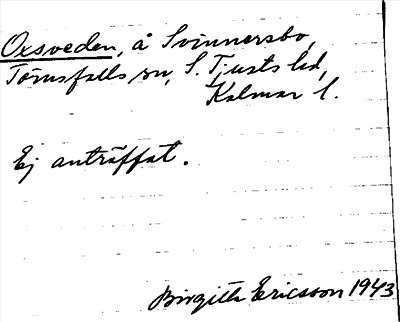 Oxsveden, å Svinnersbo,
Törnsfalls sn, S. Tjusts hd,
Kalmar l.
Ej anträffat.
Birgith Ericsson 1943